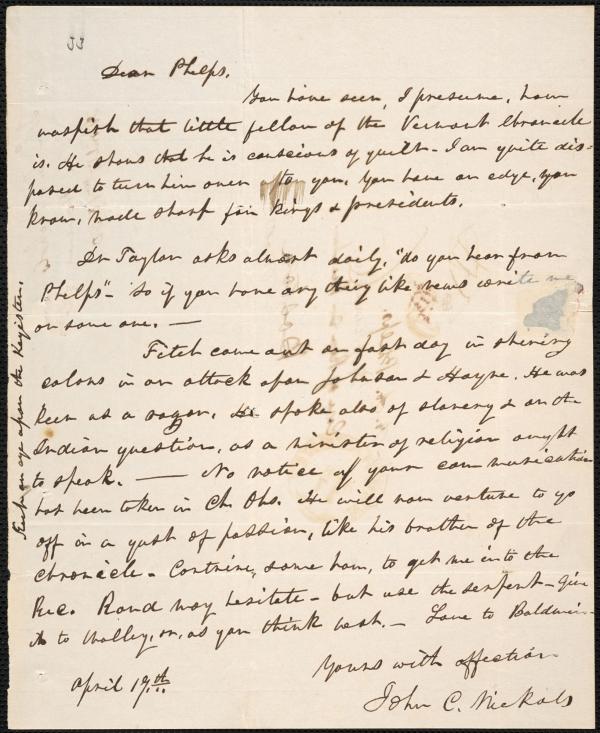 33
Dear Phelps.
You have seen, I presume, how
waspish that little fellow of the Vermont Chronicle
is. He shows that he is conscious of guilt - I am quite dis-
posed to turn him over to you. You have an edge, you
know, made sharp for kings & presidents.
Dr Taylor asks almost daily, "do you hear from
Phelps"- So if you have any thing like news write me
or some one. —
Fitch came out on fast day in shining
colors in an attack upon Johnson & Hayne. He was
keen as a razor. He spoke also of slavery & on the
Indian question, as a minister of religion ought
to speak. — No notice of your communication
has been taken in Ch. Obs. He will now venture to go
off in a gust of passion, like his brother of the
Chronicle - Contrive, some how, to get me into the
Rec. Rand may hesitate - but use the serpent - Give
it to or, as you think best. - Love to Baldwin -
Yours with affection
April 19th.
John C. Nickols
Keep an eye upon the Register.